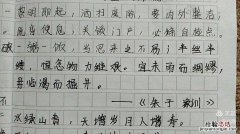 黎明即起，洒扫庭除，要内外整洁；
既昏便息，关锁门户，必亲自检点。
一饭，当思来之不易；半丝半
缕，恒念物力维艰。宜未雨而绸缪，
毋临渴而掘井。
——《朱子家训》
水绿山青，天增岁日人增寿。